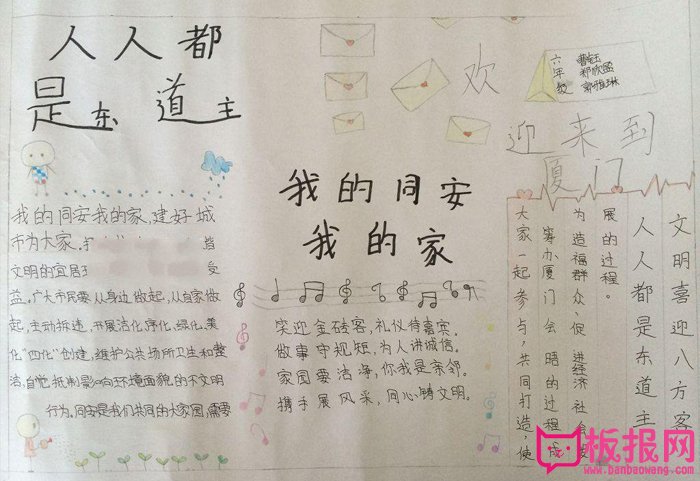 人人都
是东道主
欢
迎来到
厦门
六年级
我的同安
我的家
我的同安我的家,建好城
市为大家.
文明的宜居
益。广大市民要从身边做起,从自家做
起,主动拆违,开展洁化、序化、绿化、美
化“四化”创建,维护公共场所卫生和整
洁,自觉抵制影响环境面貌的不文明
行为。同安是我们共同的大家园,需要
笑迎金砖客,礼仪待嘉宾。
做事守规矩,为人讲诚信。
家园要洁净,你我是亲邻。
携手展风采,同心铸文明。
文明喜迎八方客
人人都是东道主
展的过程。
为造福群众、促进经济社会发
筹办厦门会晤的过程成
大家一起参与,共同打造,使
板报网
www.banbaowang.com